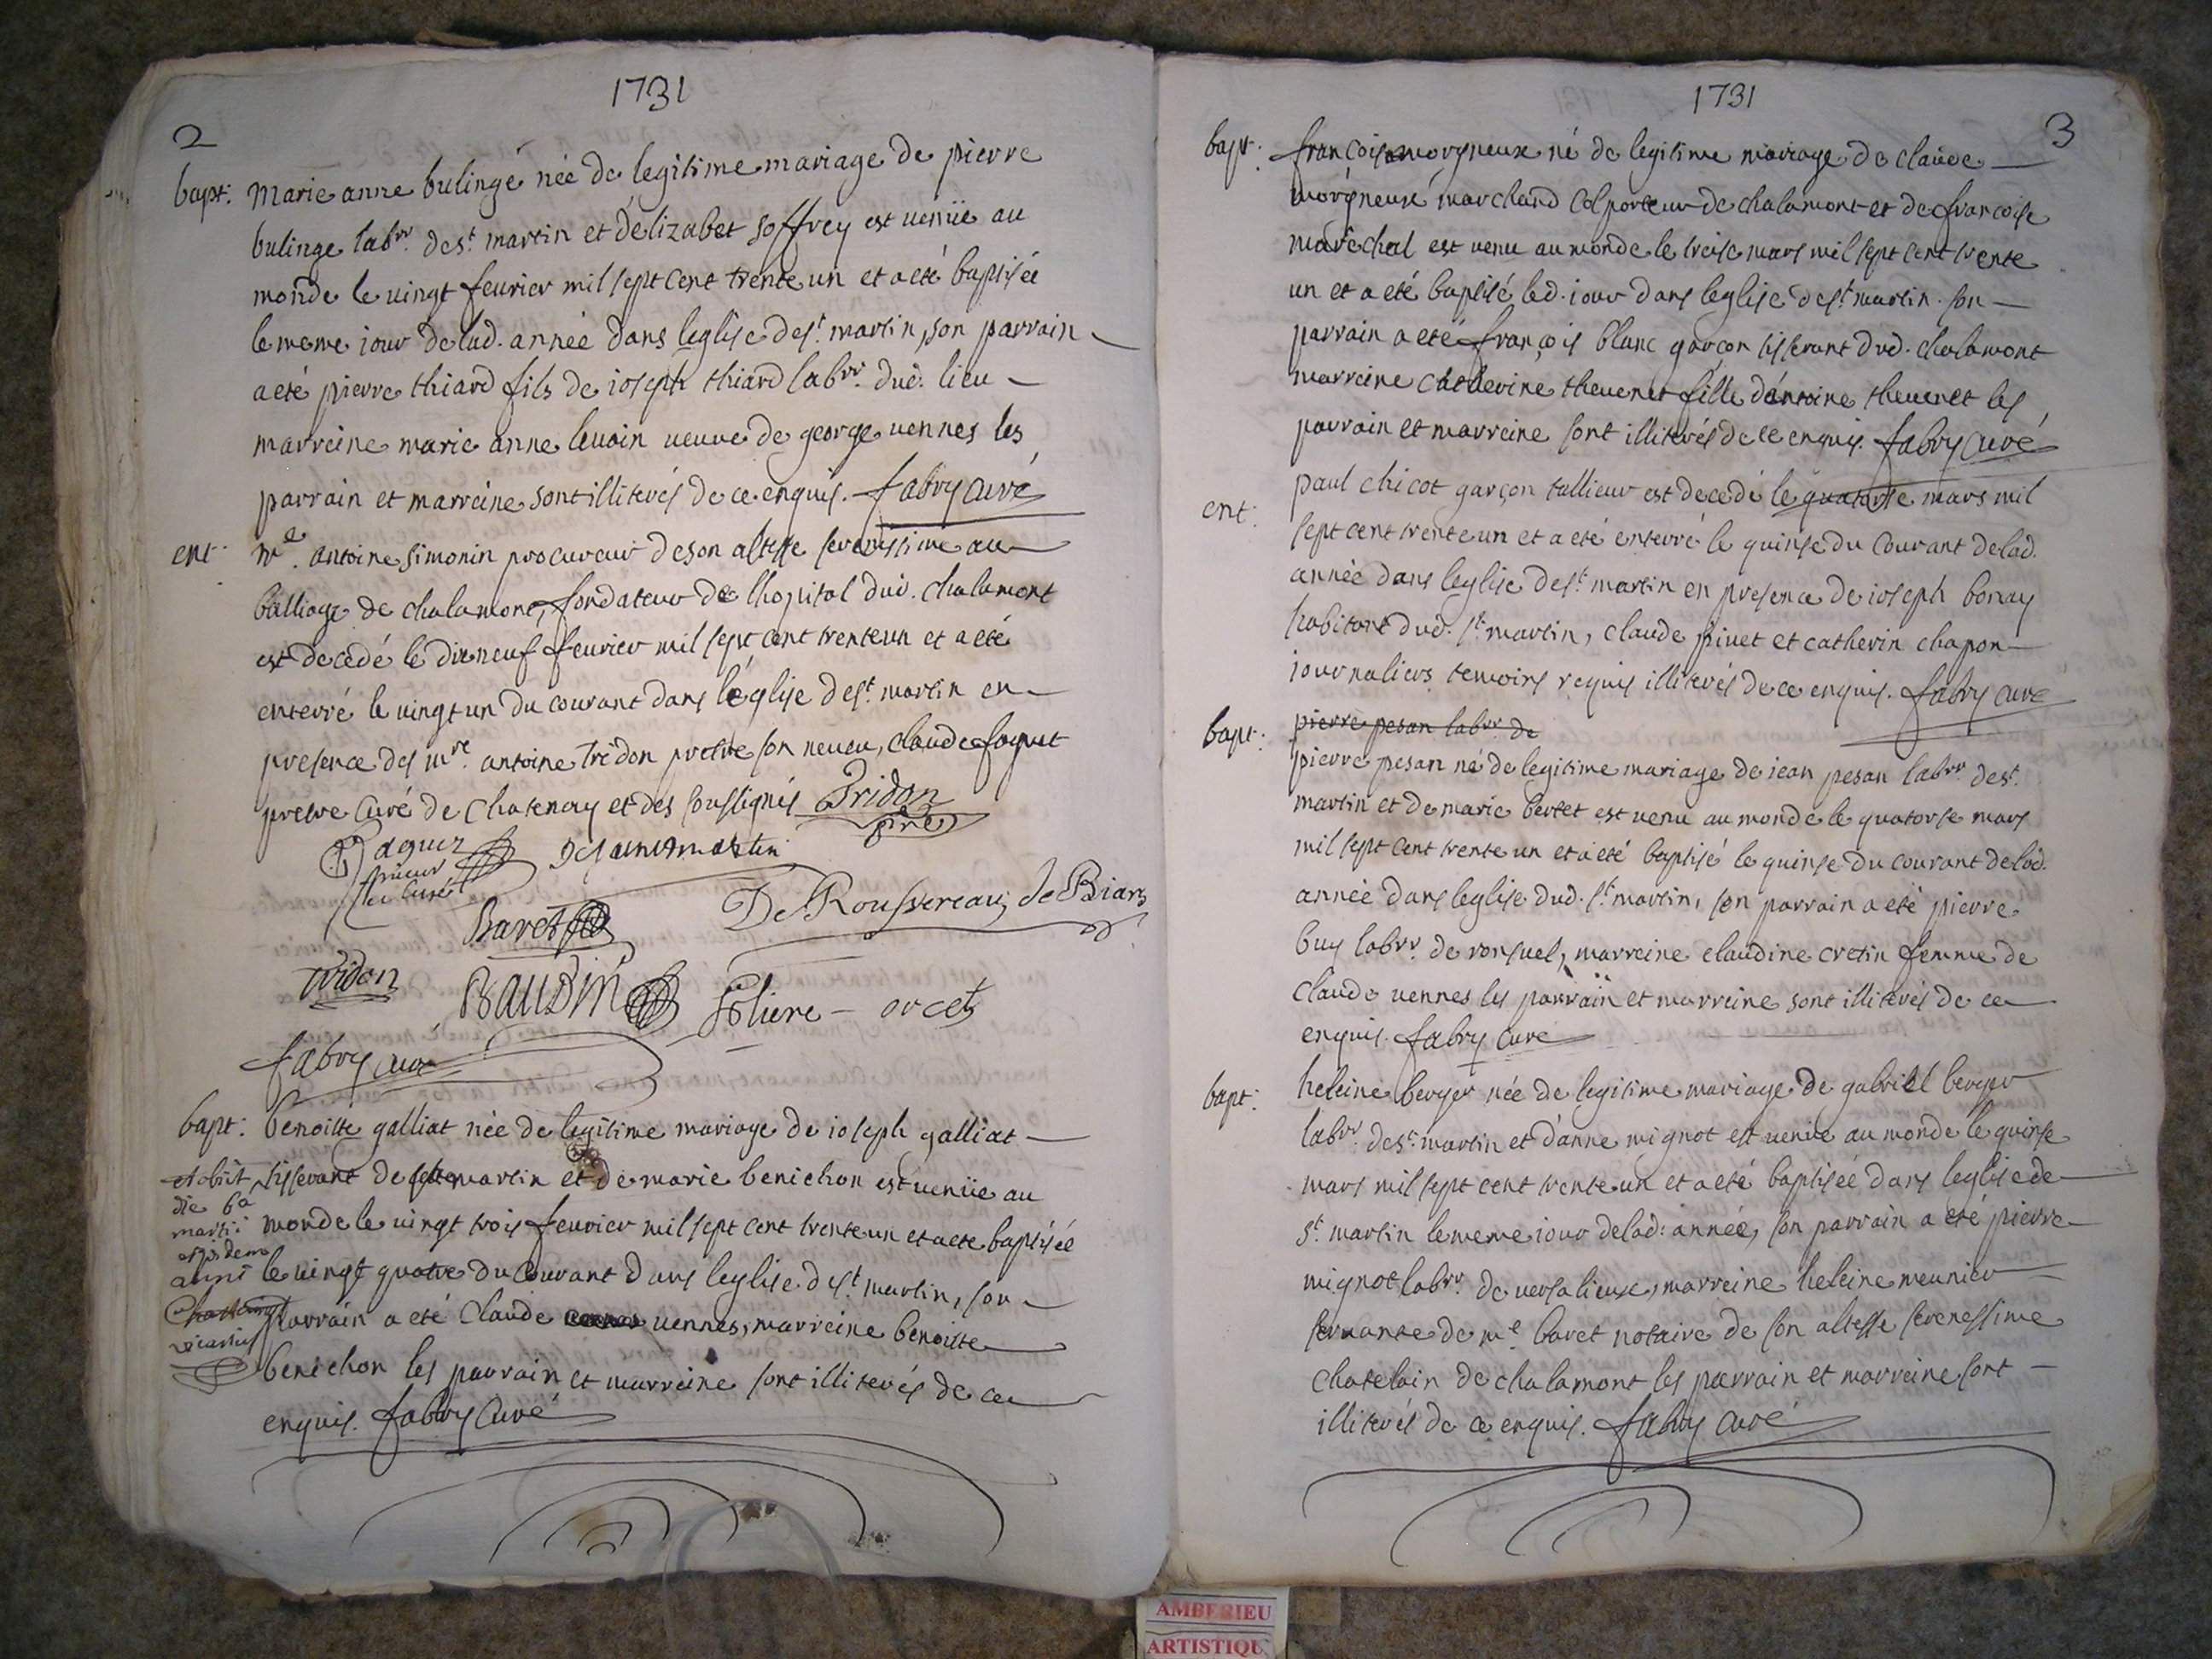 1731
2
bapt: Marie anne bulinge née de legitime mariage de pierre
bulinge labvr. de st. martin et délizabet soffrey est venüe au
monde le vingt feurier mil sept cent trente un et a eté baptisée
le meme iour de lad. année dans leglise de st. martin, son parrain
a eté pierre thiard fils de ioseph thiard labvr. dud. lieu
marreine marie anne levain veuve de george vennes les
parrain et marreine sont illiterés de ce enquis. fabry curé
ent. me. antoine simonin procureur de son altesse serenissime au
balliage de chalamont, fondateur de lhopital dud. chalamont
est decedé le dixneuf feurier mil sept cent trenteun et a eté
enterré le vingtun du courant dans l'église de st. martin en
presence des mre. antoine tridon prestre son neveu, claude faquet
prestre curé de chatenay et des soussignés Tridon
ptre
faquet
prieur
et curé
De saint martin
Baret
De Roussereau, de Biars
tridon
BAUDIN
foliere - orcet
fabry curé
bapt: benoitte galliat née de legitime mariage de ioseph galliat
et obiit tisserant de martin et de marie benichon est venüe au
die 6a
martii monde le vingt trois feurier mil sept cent trente un et a ete baptisée
anni le vingt quatre du courant dans leglise de st. martin, son
parrain a eté claude vennes, marreine benoitte
vicarius
benichon les parrain et marreine sont illiterés de ce
enquis. fabry curé
1731
3
bapt. francois morgneux né de legitime mariage de claude
morgneux marchand colporteur de chalamont et de francoise
marechal est venu au monde le treise mars mil sept cent trente
un et a eté baptisé led. iour dans leglise de st. martin. son
parrain a eté françois blanc garçon tisserant dud. chalamont
marreine catherine thevenet fille dantoine thevenet les
parrain et marreine sont illiterés de ce enquis. fabry curé
ent. paul chicot garçon tallieur est decedé le quatorse mars mil
sept cent trente un et a eté enterré le quinse du courant de lad.
année dans leglise de st. martin en presence de ioseph bonay
habitant dud. st. martin, claude pivet et catherin chapon
iournaliers temoins requis illiterés de ce enquis. fabry curé
bapt. pierre pesan labvr de
pierre pesan né de legitime mariage de jean pesan labvr de st.
martin et de marie bertet est venu au monde le quatorse mars
mil sept cent trente un et a eté baptisé le quinse du courant de lad.
année dans leglise dud. st. martin, son parrain a eté pierre
buy labvr. de ronsuel, marreine claudine cretin femme de
claude vennes les parrain et marreine sont illiterés de ce
enquis. fabry curé
bapt: heleine berger née de legitime mariage de gabriel berger
labvr. de st. martin et d'anne mignot est venüe au monde le quinse
mars mil sept cent trente un et a eté baptisée dans leglise de
st. martin le meme iour de lad: année, son parrain a eté pierre
mignot labvr. de versalieux, marreine heleine meunier
servante de me baret notaire de son altesse serenessime
chatelain de chalamont les parrain et marreine sont
illiterés de ce enquis. fabry curé
AMBERIEU
ARTISTIQU